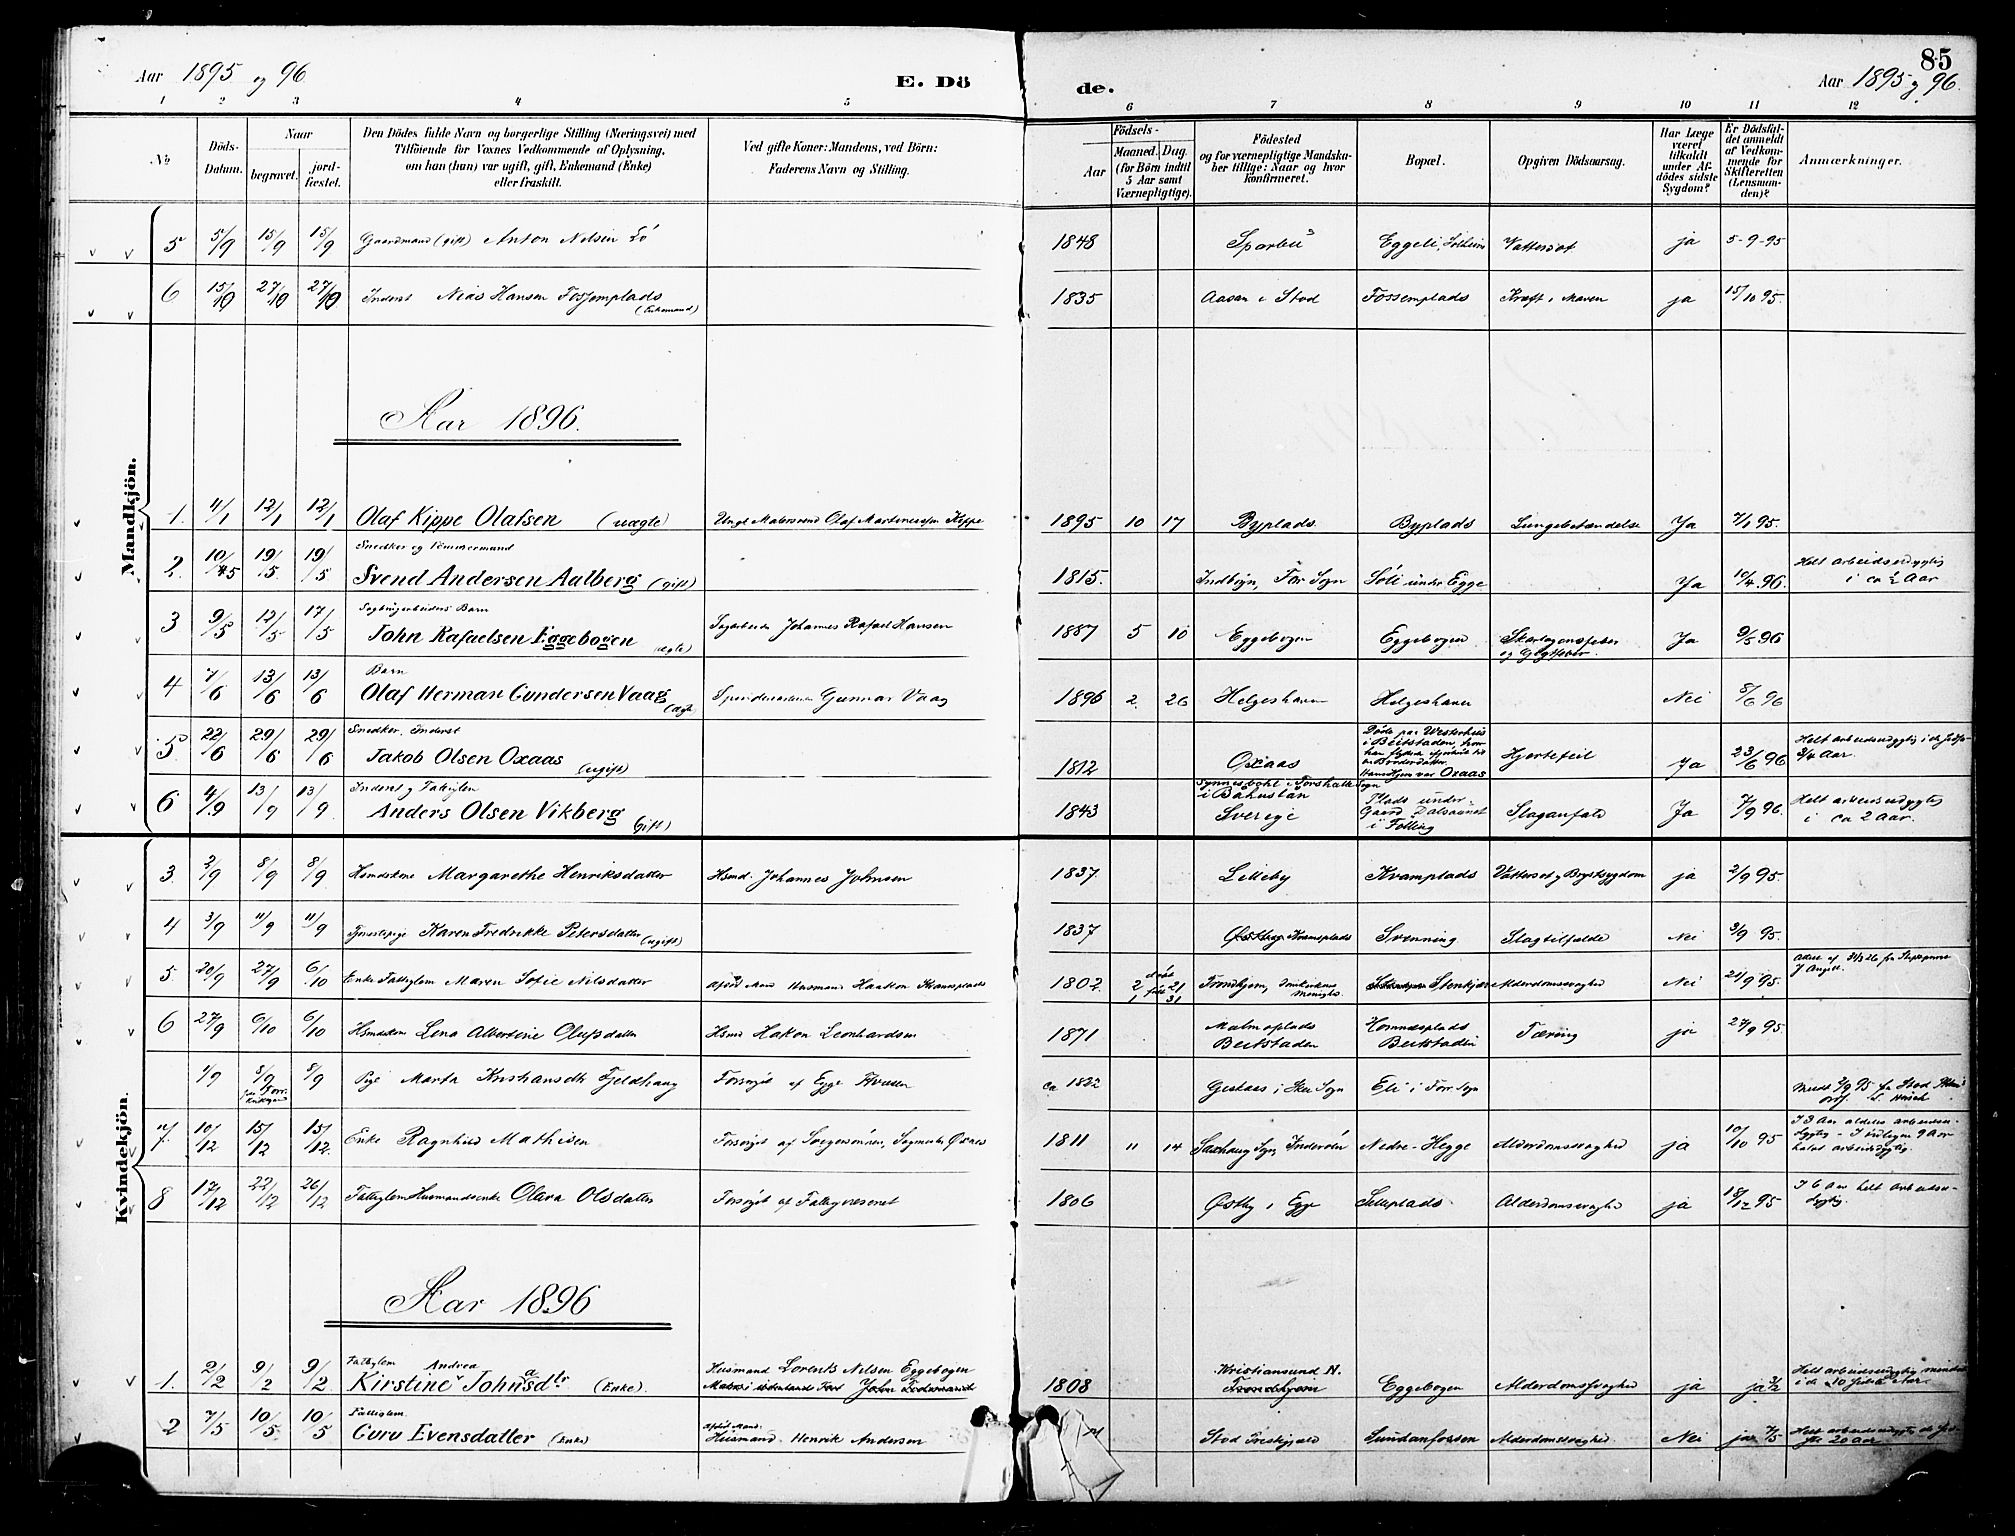 85
Aar 1895 og 96.
E. Dö
de.
Aar 1895 og 96.
1 2 3 4 5 6 7 8 9 10 11 12
No
Döds-Datum.
Naar
begravet.
jord-fæstet.
Den Dödes fulde Navn og borgerlige Stilling (Næringsvei) med
Tilföiende for Voxnes Vedkommende af Oplysning,
om han (hun) var ugift, gift, Enkemand (Enke)
eller fraskilt.
Ved gifte Koner: Mandens, ved Börn:
Faderens Navn og Stilling.
Födsels-
Aar
Maaned. Dag.
(for Börn indtil
5 Aar samt
Værnepligtige).
Födested
og for værnepligtige Mandska-
ber tillige: Naar og hvor
konfirmeret.
Bopæl.
Opgiven Dödsaarsag.
Har Læge
været
tilkaldt
under Af-
dödes sidste
Sygdom?
Er Dödsfal-
det anmeldt
af Vedkom-
mende for
Skifteretten
(Lensman-
den)?
Anmærkninger.
Mandkjön.
5 5/9 15/9 15/9 Gaardmand (gift) Anton Nelsen Lö 1848 Sparbu Eggeli, Vattersot ja 5-9-95
6 15/10 27/10 27/10 Inderst Nias Hansen Fossemplads (Enkemand) 1835 Aasan i Stod Fossemplads Kræft i Maven ja 15/10 95.
Aar 1896.
1. 4/1 12/1 12/1 Olaf Kippe Olafsen (uægte) Olaf Martinessen Kippe 1895 10 17 Byplads Byplads Lungebetændelse Ja 7/1 95.
Snedker og Tömmermand
2. 10/45 19/5 19/5 Svend Andersen Aalberg (gift) 1815. Indbryn, For Sogn Söli under Egge Ja 96. Helt arbeidsudygtig
i ca ½ Aar
Sagbrugarbeiders Barn
3 9/5 12/5 17/5 John Rafaelsen Eggebogen (ægte) Sagarbeider Johannes Rafael Hansen 1887 5 10 Eggebogen Eggebogen Skarlagensfeber Ja 9/5 96
og Gigtfeber.
Barn
4 7/6 13/6 13/6 Olaf Herman Gundersen Vaag (ægte) Gunnar Vaag 1896 2 26 Helgeshavn Helgeshavn Nei 8/6 96
Snedker. Inderst
5 22/6 29/6 29/6 Jakob Olsen Oxaas (ugift) 1812 Oxaas Döde paa Westerhus
i Beitstaden, hvor
Hans Hjem var Oxaas Hjertefeil Ja 23/6 96
3/4 Aar.
Inderst og Fattiglem
6 4/9 13/9 13/9 Anders Olsen Vikberg (gift) 1843 i Bahuslän
Sverige Plads under
Gaard Dalsaunet
i Følling Slaganfald Ja 7/9 96. Helt arbeidsudygtig
i ca 2 Aar.
Kvindekjön.
3. 2/9 8/9 8/9 Hsmdskone Margarethe Henriksdatter Hsmd. Johannes Johnsen 1837 Lilleby Kvamplads Vattersot og Brystsygdom ja 2/9 95.
4 3/9 11/9 11/9 Tjenestepige Karen Fredrikke Petersdatter (ugift) 1837 Østby Kvamplads Svenning Slagtilfælde Nei 3/9 95.
5 20/9 27/9 6/10 Enke Fattiglem Maren Sofie Nilsdatter Afdöd Mand Husmand Haakon Kvamsplads 1802. Trondhjem, Stenkjær Alderdomssvaghed Nei 21/9 95.
6 27/9 6/10 6/10 Hsmdskone Lena Albertine Olufsdatter Hsmd Hakon Leonhardsen 1871 Malmoplads
Beitstaden Homnesplads
Beitstaden Tæring ja 27/9 95.
1/9 8/9 8/9 Pige Marta Kristiansdtr Fjeldhaug Forsörget af Egge ca 1822 Gestaas i Skei Sogn Eli i For Sogn
7. 10/12 15/12 15/12 Enke Ragnhild Mathisen Forsörget af Svigersönnen, 1811 11 14 Saxhaug Sogn, Inderöen Nedre-Hegge Alderdomssvaghed ja 10/10 95 I 3 Aar aldeles arbeidsu-
dygtig
8 17/12 22/12 26/12 Fattiglem Husmandsenke Olava Olsdatter Forsörget af Fattigvæsenet 1806 Østby i Egge Selliplads Alderdomssvaghed ja 18/12 95 I 6 Aar helt arbeidsu-
dygtig.
Aar 1896
Fattiglem Andrea
1. 2/2 9/2 9/2 Kirstine Johnsdtr (Enke). Husmand Lorents Nilsen Eggebogen 1808 Kristiansund N.
Trondhjem Eggebogen Alderdomssvaghed ja ja 3/2
Fattiglem.
2 7/5 10/5 10/5 Guru Evensdatter (Enke) Afdöd Mand.
Husmand Henrik Andersen Stod Præstgjeld Sundanfossen Alderdomssvaghed Nei ja 7/5 20 Aar